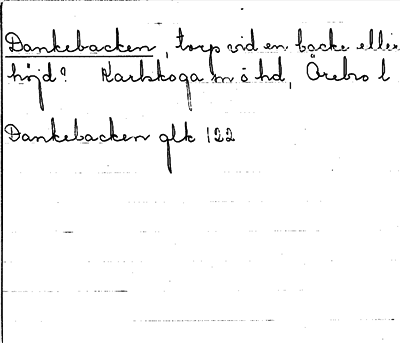 Dankebacken, torp vid en backe eller
höjd? Karlskoga m ö hd, Örebro l
Dankebacken glk 122